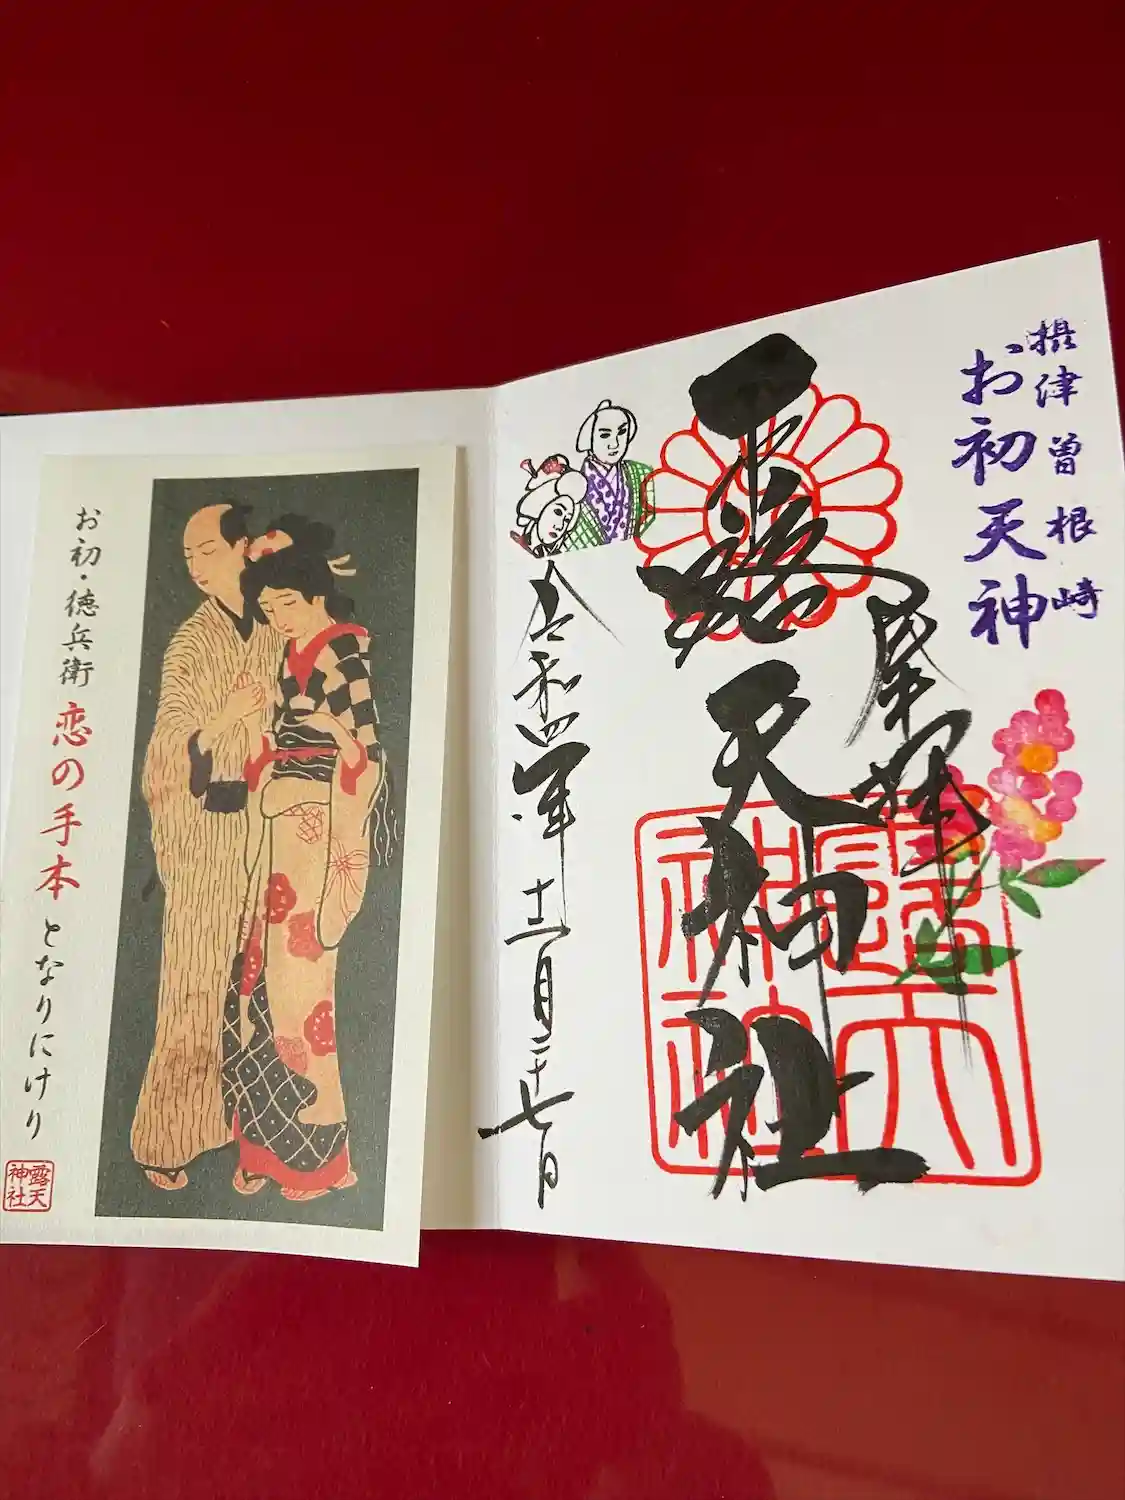 摂津曽根崎
お初天神
奉拝
露天神社
露天神社
令和四年十二月二十七日
お初・徳兵衛 恋の手本となりにけり
露天神社